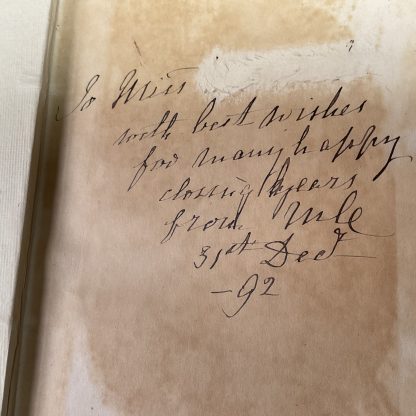 To Miss
with best wishes
for many happy
closing years
from Me
31st Decr
-92